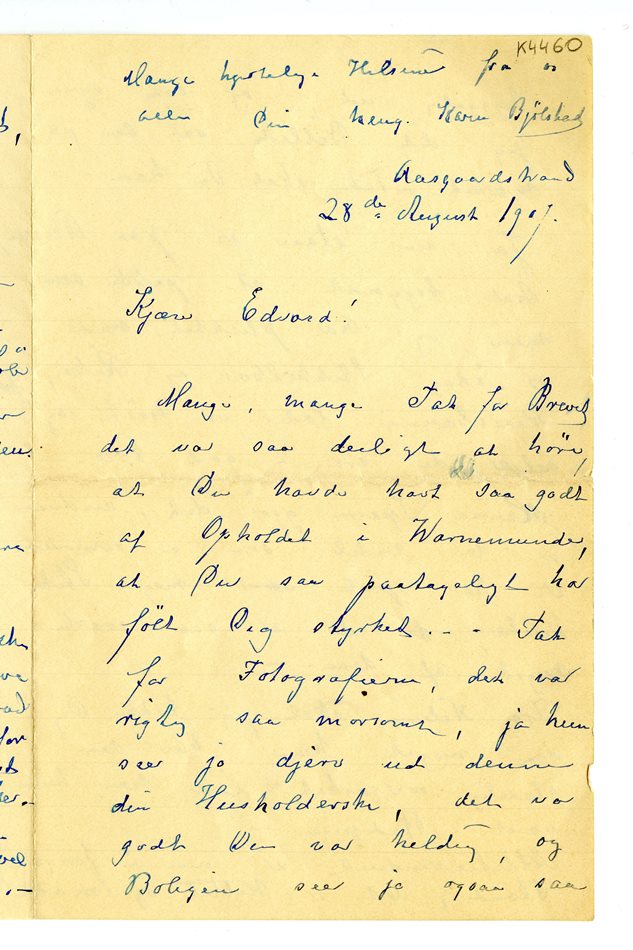 K4460
Mange hjertelige Hilsener fra os
alle Din heng. Karen Bjölstad
Aasgaardstrand
28de August 1907.
Kjære Edvard!
Mange, mange Tak for Brevet
det var saa deiligt at höre,
at Du havde havt saa godt
af Opholdet i Warnemunde,
at Du saa paatageligt har
fölt Dig styrket. - - Tak
for Fotografierne, det var
rigtig saa morsomt, ja hun
seer jo djerv ud denne
din Husholderske, det var
godt Du var heldig, og
Boligen seer jo ogsaa saa